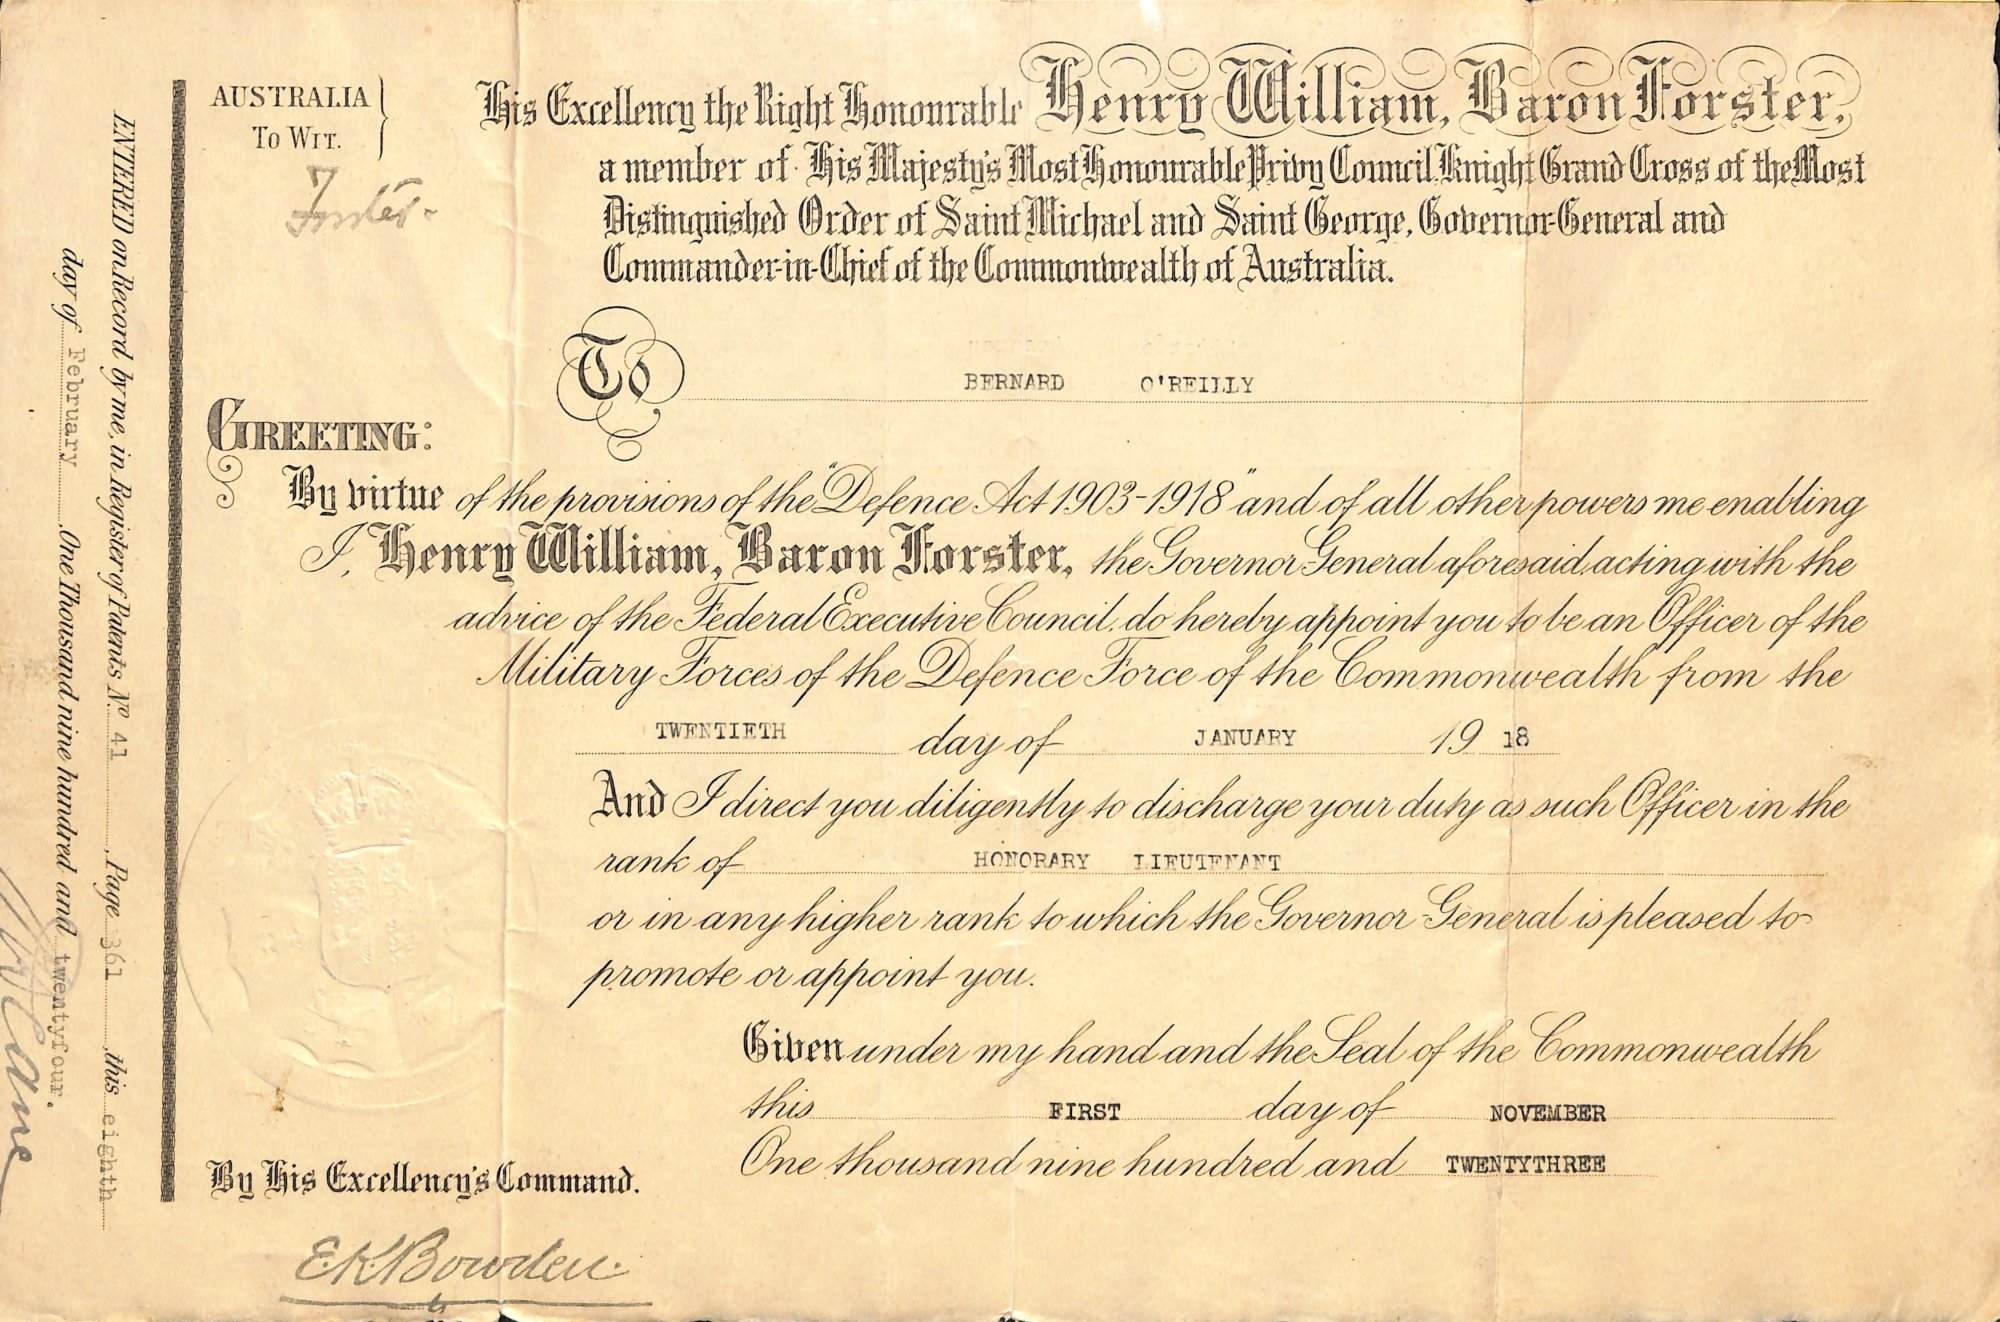 AUSTRALIA
TO WIT.
Forster.
His Excellency the Right Honourable Henry William, Baron Forster,
a member of His Majesty's Most Honourable Privy Council, Knight Grand Cross of the Most
Distinguished Order of Saint Michael and Saint George, Governor-General and
Commander-in-Chief of the Commonwealth of Australia.
To BERNARD O'REILLY
GREETING:
By virtue of the provisions of the "Defence Act 1903-1918" and of all other powers me enabling
I, Henry William, Baron Forster, the Governor General aforesaid, acting with the
advice of the Federal Executive Council, do hereby appoint you to be an Officer of the
Military Forces of the Defence Force of the Commonwealth from the
TWENTIETH day of JANUARY 19 18
And I direct you diligently to discharge your duty as such Officer in the
rank of HONORARY LIEUTENANT
or in any higher rank to which the Governor-General is pleased to
promote or appoint you.
Given under my hand and the Seal of the Commonwealth
this FIRST day of NOVEMBER
One thousand nine hundred and TWENTYTHREE
By His Excellency's Command.
E.K. Bowden.
ENTERED on Record by me, in Register of Patents No 41, Page 361, this eighth
day of February One Thousand nine hundred and twentyfour.